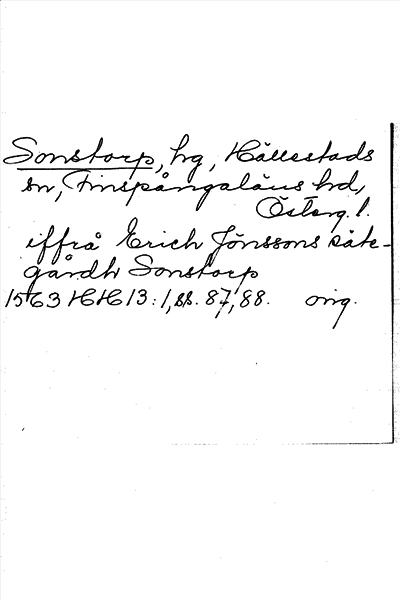 Sonstorp, hg, Hällestads
sn, Finspångaläns hd,
Österg. l.
iffrå Erich Jönssons säte-
gårdh Sonstorp
1563 HH 13:1, ss. 87, 88. orig.